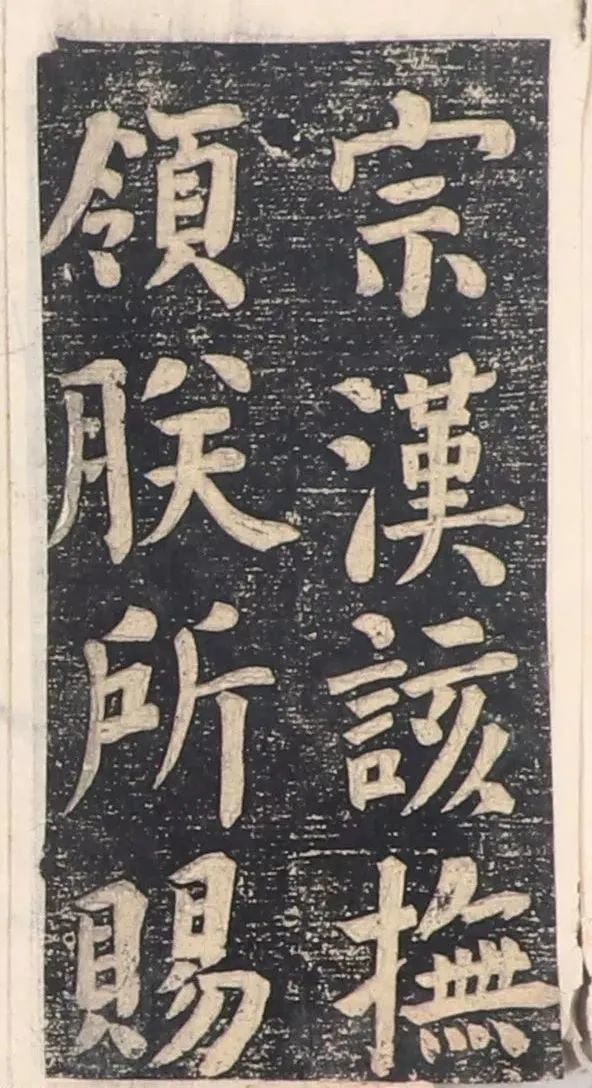 宗漢該撫
領朕所賜